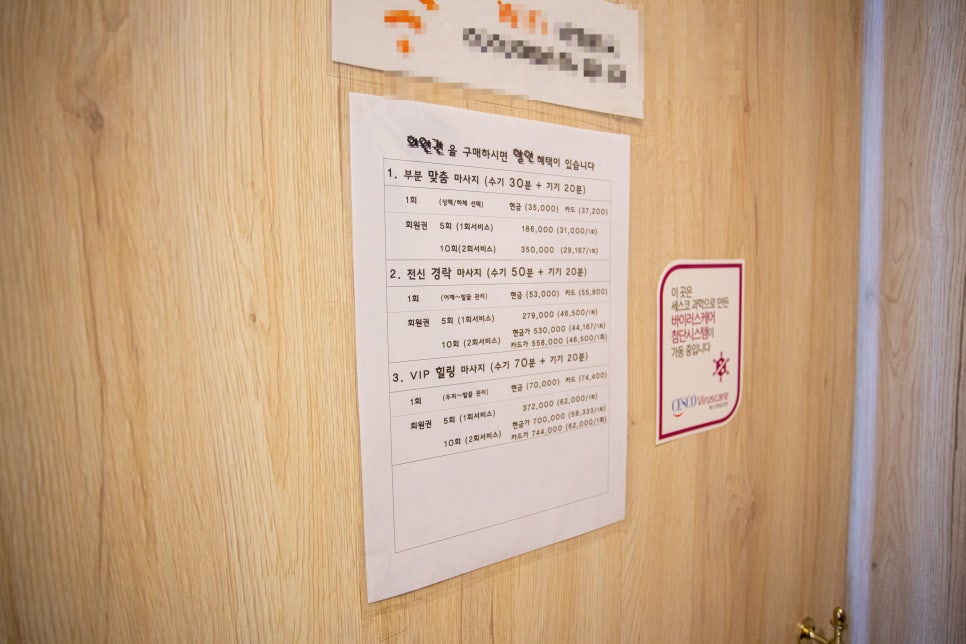 회원권 을 구매하시면 할인 혜택이 있습니다
1. 부분 맞춤 마사지 (수기 30분 + 기기 20분)
1회 (상체/하체 선택) 현금 (35,000) 카드 (37,200)
회원권 5회 (1회서비스) 186,000 (31,000/1회)
10회(2회서비스) 350,000 (29,167/1회)
2. 전신 경락 마사지 (수기 50분 + 기기 20분)
1회 (어깨~발끝 관리) 현금 (53,000) 카드 (55,800)
회원권 5회 (1회서비스) 279,000 (46,500/1회)
10회 (2회서비스) 현금가 530,000 (44,167/1회)
카드가 558,000 (46,500/1회)
3. VIP 힐링 마사지 (수기 70분 + 기기 20분)
1회 (두피~발끝 관리) 현금 (70,000) 카드 (74,400)
회원권 5회 (1회서비스) 372,000 (62,000/1회)
10회 (2회서비스) 현금가 700,000 (58,333/1회)
카드가 744,000 (62,000/1회)
이 곳은
세스코 과학으로 만든
바이러스케어
첨단시스템이
가동 중입니다
CESCO Viruscare